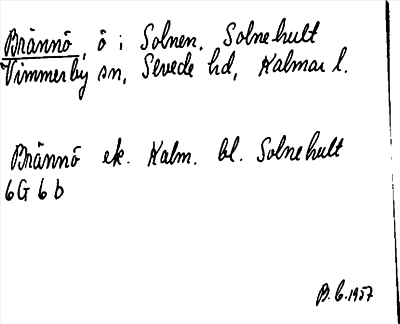 Brännö, ö i Solnen. Solnehult
Vimmerby sn, Sevede hd, Kalmar l.
Brännö ek. Kalm. bl. Solnehult
6G 6b
B.C. 1957